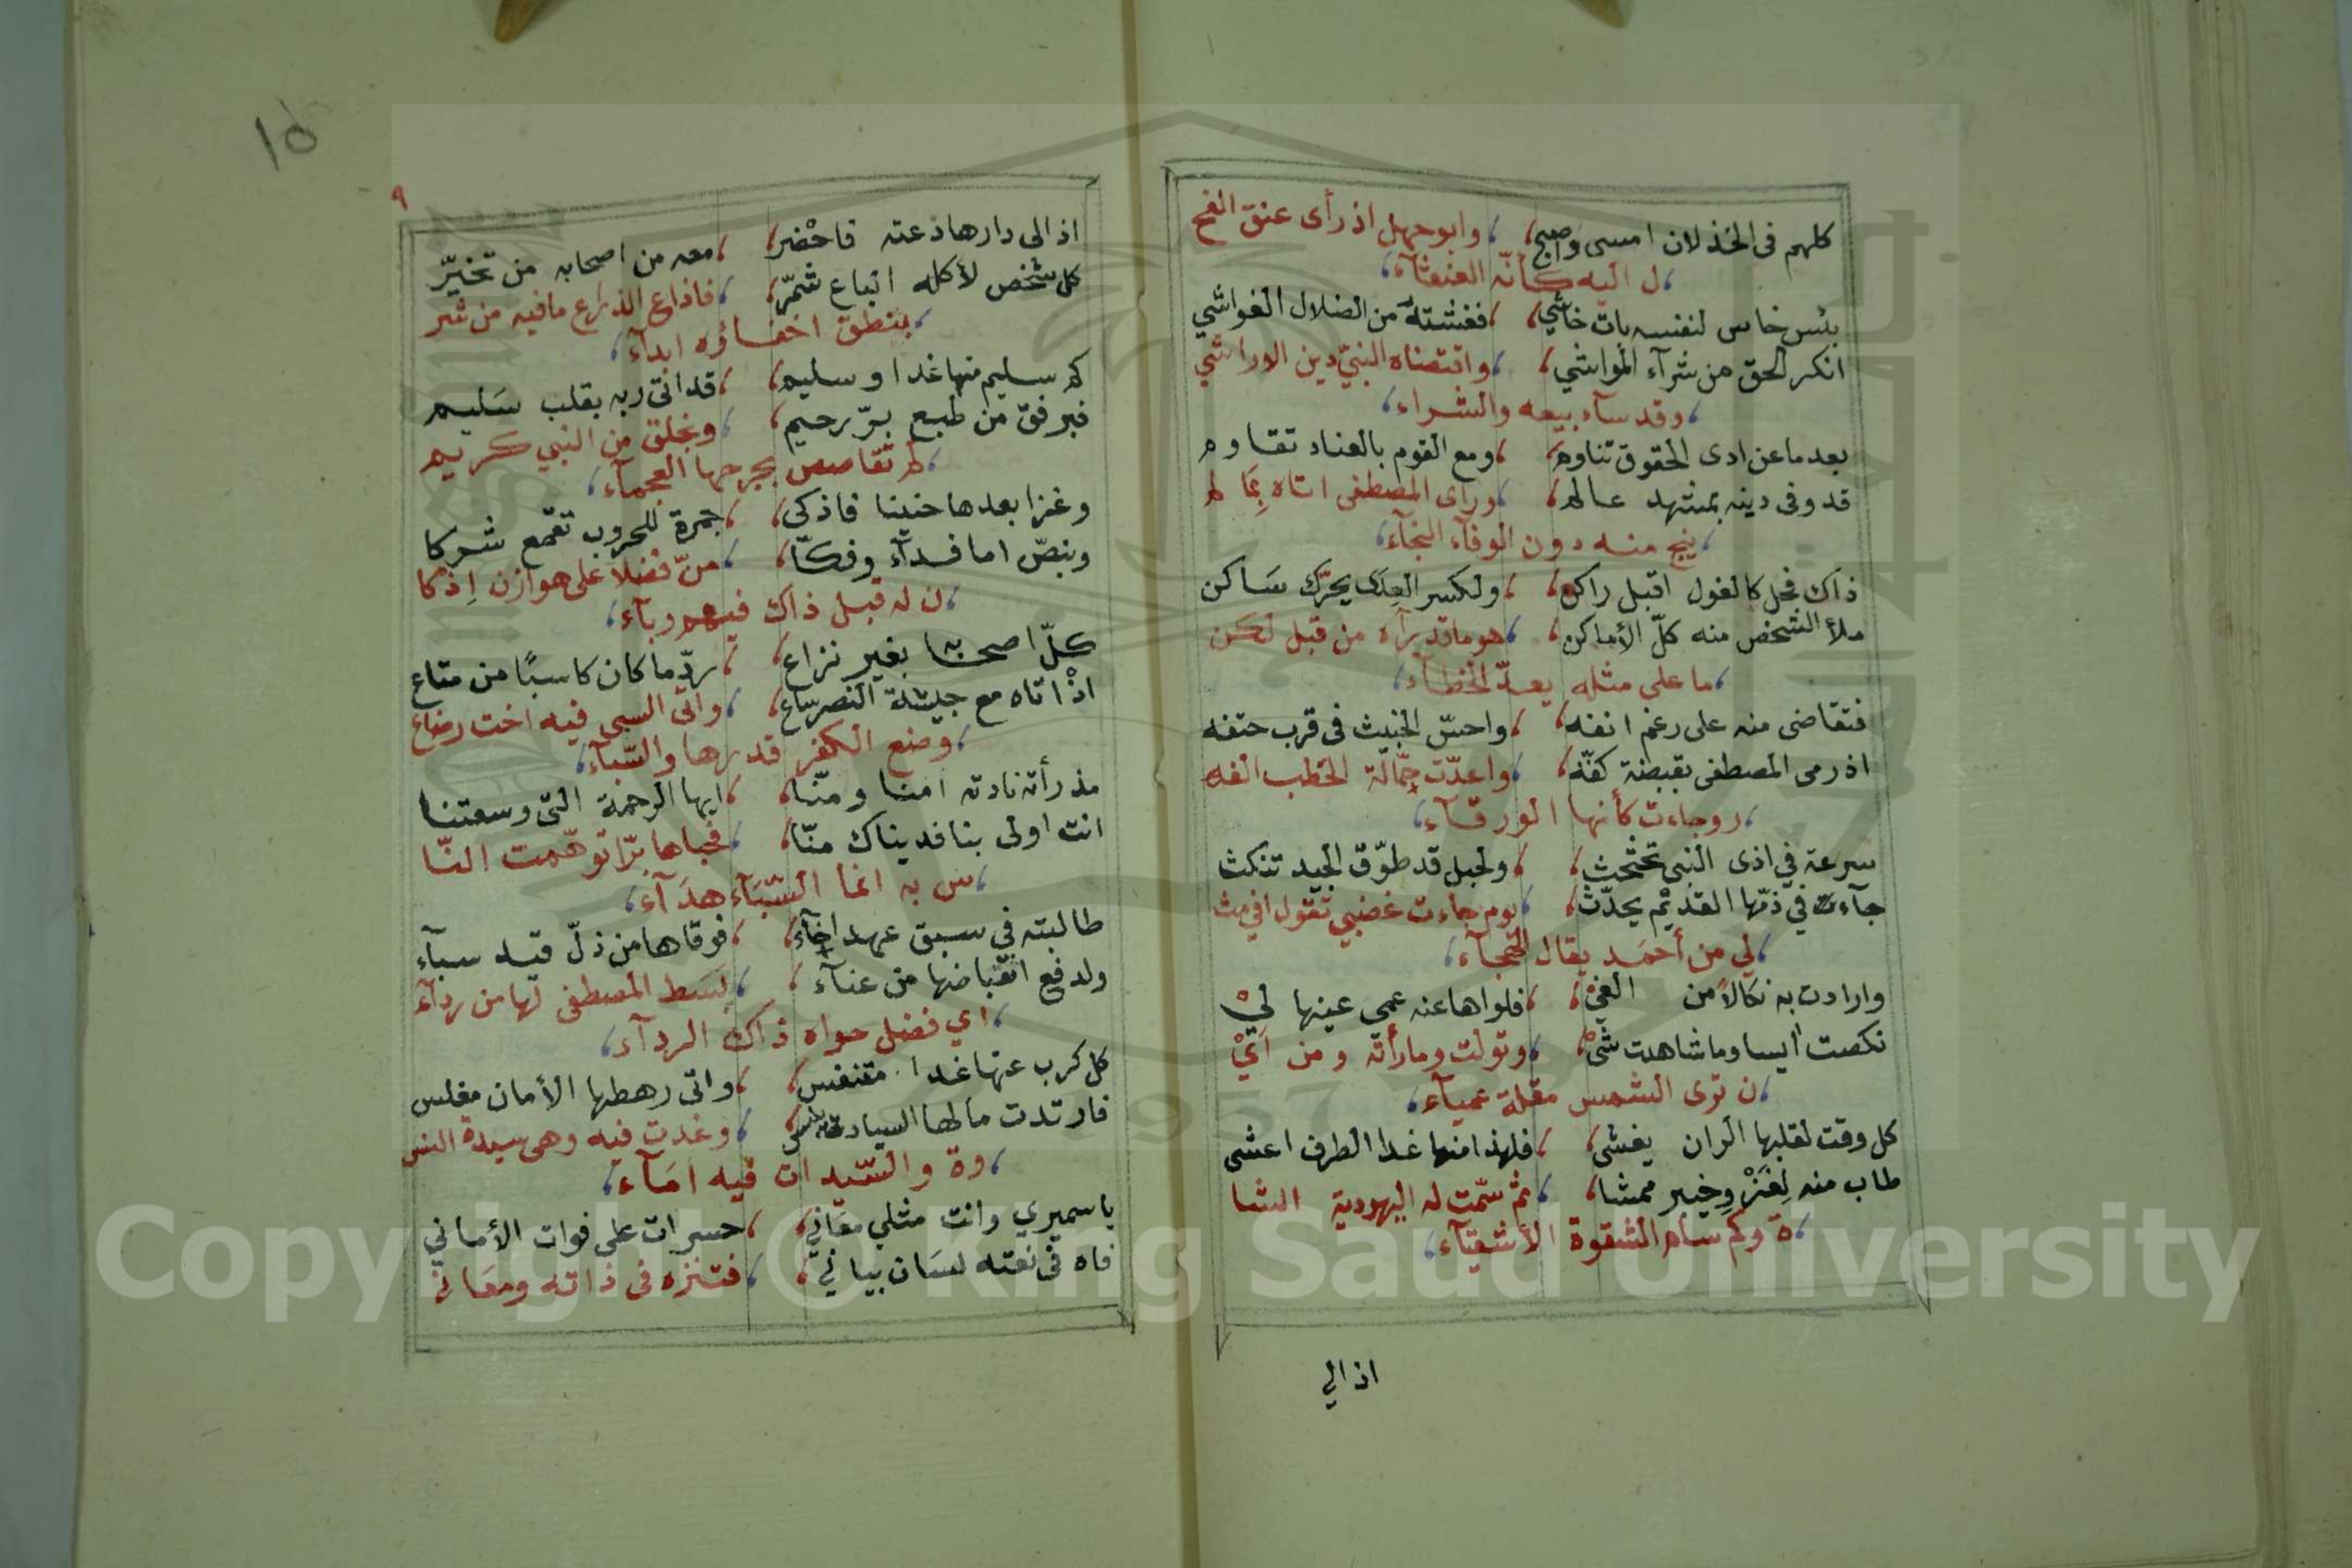 كلهم فى الخذلان امسى وَاصبح، ، وابوجهل اذ رأى عنق الفح
، ل اليه كأنّه العنقآء،
بئس خاس لنفسه بات خاشي، ، فغشته من الضلال الغواشي
انكر الحق من شرآء المواشي، ، واقتضاه النبيّ دين الاراشي
، وقد سآء بيعه والشراء،
بعد ما عن ادى الحقوق تناوم، ، ومع القوم بالعناد تقاوم
قد وفى دينه بمشهد عالم، ، وراى المصطفى اتاه بِمَا لم
، ينج منه دون الوفآء النجآء،
ذاك فحل كالغول اقبل راكن، ، ولكسر العِدَى يحرّك سَاكن
ملأ الشخص منه كلّ الأماكن، ، هو ما قد يرآه من قبل لكن
، ما على مثله يعدّ الخطآء،
فتقاضى منه على رغم انفه، ، واحسّ الخبيث فى قرب حتفه
اذ رمى المصطفى بقبضة كفّه، ، واعدّت حمّالة الحطب الفه
، ر وجاءت كأنها الورقآء،
سرعة في اذى النبى تحثحث، ، ولحبل قد طوّق الجيد تنكث
جآءت في ذمّها القديم يحدّث، ، يوم جاءت غضبى تقول افي مث
، لي من أحمَد يقال الهجآء،
وارادت به نكالاً من الغيْ، ، فلواها عنه عمى عينها ليْ
نكصت ايسا وما شاهدت شىْ، ، وتولت وما رأته ومن اَيْ
، ن ترى الشمس مقلة عميآء،
كل وقت لقلبها الران يغشى، ، فلهذا منها غدا الطرف اعشى
طاب منه لِغَزْوِ خيبر ممشا، ، ثم سمّت له اليهودية الشا
، ة وكم سام الشقوة الأشقيآء،
اذ الي
10
٩
اذ الى دارها دعته فاحْضر، ، معه من اصحابه من تخيّر
كل شخص لأكله الباع شمّر، ، فاذاع الذراع ما فيه من شر
، بنطق اخفاؤه ابدآء،
كم سليم منها غدا وسليم، ، قد اتى ربه بقلب سَليم
فبرفق من طبع برّ رحيم، ، وبخلق من النبي كريم
، لم تقاصص بجرحها العجمآء،
وغزا بعدها حنينا فاذكى، ، جمرة للحروب تقمع شركا
وبنصّ اما فدآء وفكّا، ، منّ فضلا على هوازن اِذ كا
، ن له قبل ذاك فيهم ربآء،
كلّ اصحابه بغير نزاع، ، ردّ ما كان كاسبًا من متاع
اذْ اتاه مع جيشه النصر ساع، ، واتى السبى فيه اخت رضاع
، وضع الكفر قدرها والسّبآء،
مذ رأته نادته امنا ومنّا، ، ايها الرحمة التى وسعتنا
انت اولى بنا فديناك منّا، ، فحباها برّا توهّمت النّا
، س به انما السّبَآء هدَآء،
طالبته في سبق عهد اخآء، ، فوقاها من ذلّ قيد سبآء
ولدفع انقباضها من عنآء، ، بسَط المصطفى لها من ردآء
، اي فضل حواه ذاك الردآء،
كل كرب عنها غدا متنفس، ، واتى رهطها الأمان مغلس
فارتدت ما لها السيادة، ، وغدت فيه وهى سيدة النس
، وة والسّيدات فيه امَآء،
يا سميري وانت مثلي مقَاني، ، حسرات على فوات الأماني
فاه فى نعته لسَان بياني، ، فتنزه فى ذاته ومعَانى
Copyright © King Saud University
1957